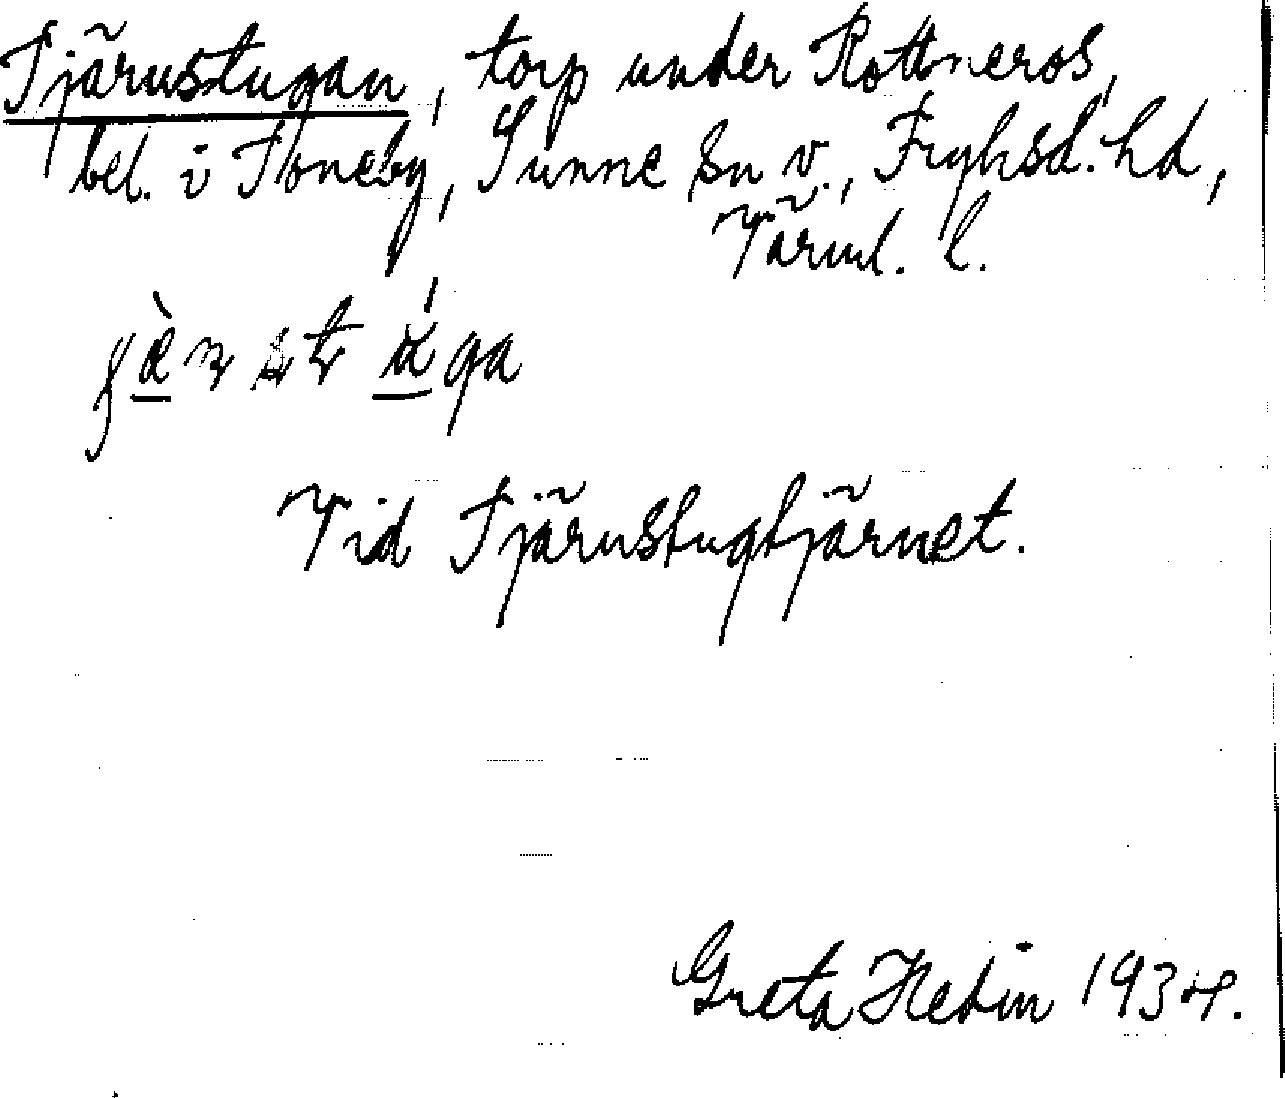 Tjärnstugan, torp under Rottneros,
bel. i Toneby, Sunne sn v., Fryksd. hd,
Värml. l.
Vid Tjärnstugtjärnet.
Greta Hedin 1934.